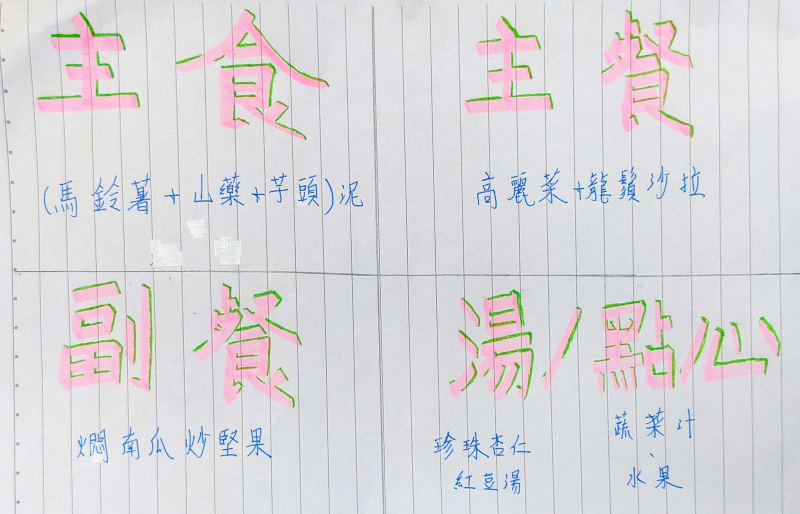 主食
(馬鈴薯+山藥+芋頭)泥
主餐
高麗菜+龍鬚沙拉
副餐
燜南瓜炒堅果
湯/點心
珍珠杏仁
紅豆湯
蔬菜汁、
水果